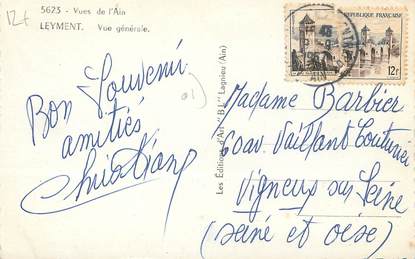 12f
5623 - Vues de l'Ain
LEYMENT. Vue générale.
Bon Souvenir
amitiés
Christian
Les Éditions d'Art "B J" Lagnieu (Ain)
RÉPUBLIQUE FRANÇAISE
12f
AIN
Madame Barbier
60 av Vaillant Couturier
Vigneux sur Seine
(seine et oise)